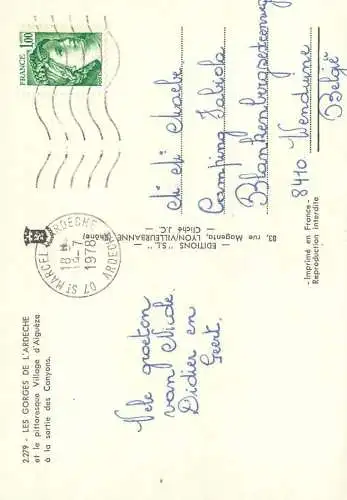 2.279 - LES GORGES DE L'ARDECHE
et le pittoresque Village d'Aiguèze
à la sortie des Canyons.
Vele groeten
van Nicole
Didier en
Geert.
07 ST MARCEL D'ARDECHE
18 H
14-7
1978
ARDECHE
— EDITIONS "S.L." —
93, rue Magenta, LYON-VILLEURBANNE (Rhône)
— Cliché J.C. —
1,00
FRANCE
Camping Fabiola
Blankenbergsesteenweg
8410 Wenduine
België
- Imprimé en France -
Reproduction interdite